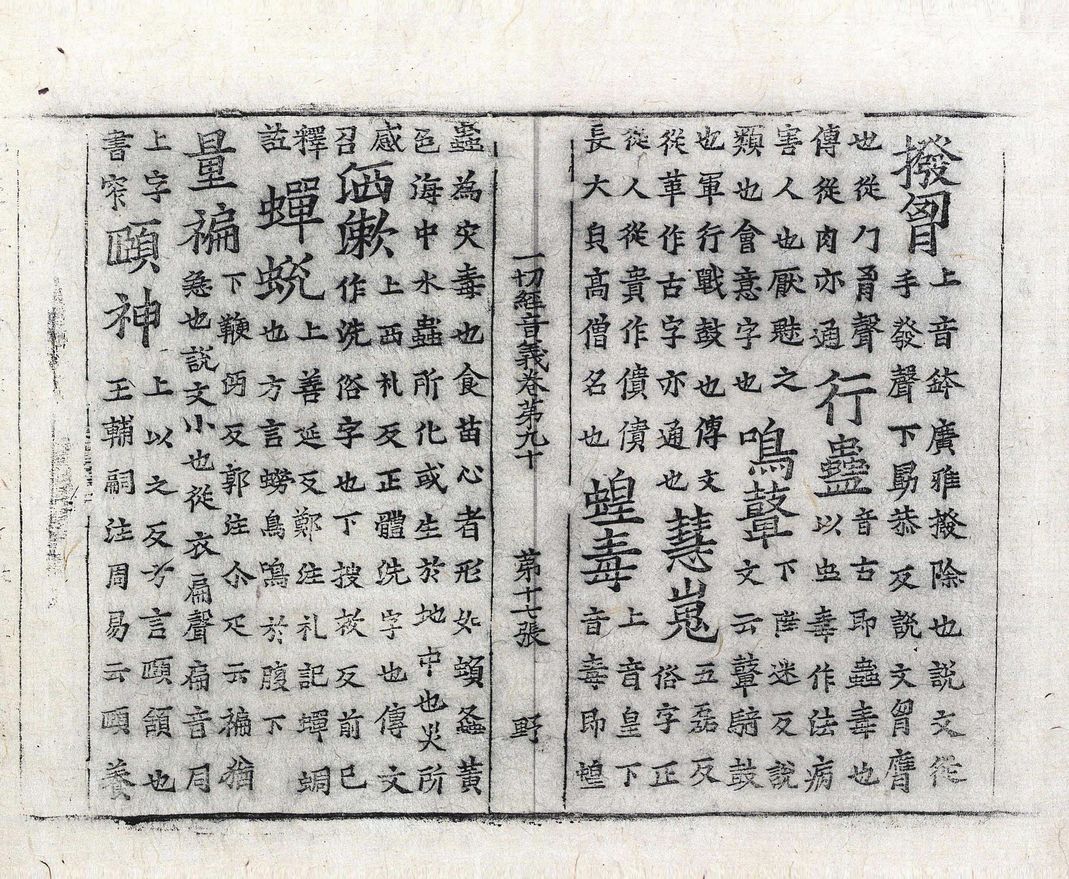 撥匈上音鉢廣雅撥除也説文從
手發聲下勗恭反説文胷膺
也從勹胷聲
傳從肉亦通行蠱音古即蠱毒也
以虫毒作法病
害人也厭魅之
類也會意字也鳴鼙下陛迷反説
文云鼙騎鼓
也軍行戰鼓也傳文
從革作古字亦通也慧嵬五磊反
俗字正
從人從貴作僓僓
長大皃高僧名也蝗毒上音皇下
音毒即蝗
一切經音義卷第九十 第十七張 野
蟲為灾毒也食苗心者形如蝢螽黃
色海中水蟲所化或生於地中也災所
感
召洒漱上西礼反正體洗字也傳文
作洗俗字也下搜救反前已
釋
註蟬蛻上善延反鄭注礼記蟬蜩
也方言蟧鳥鳴於腹下
量褊下鞭沔反郭注尒疋云褊猶
急也説文小也從衣扁聲扁音同
上字
書窄頤神上以之反方言頤頷也
王輔嗣注周易云頤養